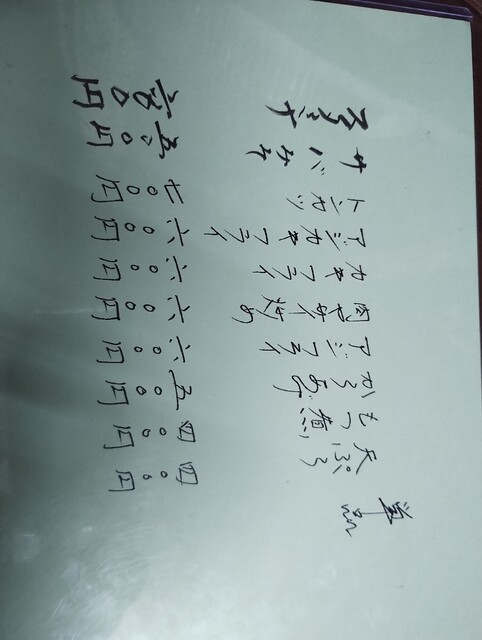 単品
天ぷら 四〇〇円
もつ煮 四〇〇円
からあげ 五〇〇円
アジフライ 六〇〇円
肉ヤサイ炒め 六〇〇円
カキフライ 六〇〇円
アジカキフライ 六〇〇円
トンカツ 七〇〇円
サバみそ 五〇〇円
六〇〇円